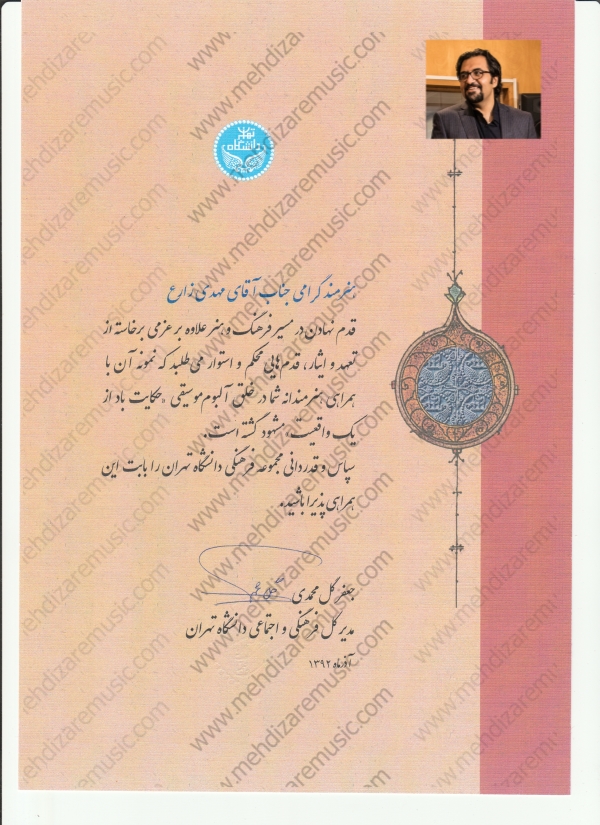 دانشگاه
تهران
هنرمند گرامی جناب آقای مهدی زارع
قدم نهادن در مسیر فرهنگ و هنر علاوه بر عزمی برخاسته از
تعهد و ایثار، قدم‌هایی محکم و استوار می‌طلبد که نمونه آن با
همراهی هنرمندانه شما در خلق آلبوم موسیقی «حکایت باد از
یک واقعیت» مشهود گشته است.
سپاس و قدردانی مجموعه فرهنگی دانشگاه تهران را بابت این
همراهی پذیرا باشید.
جعفر گل محمدی
مدیر کل فرهنگی و اجتماعی دانشگاه تهران
آذرماه ۱۳۹۲
www.mehdizaremusic.com